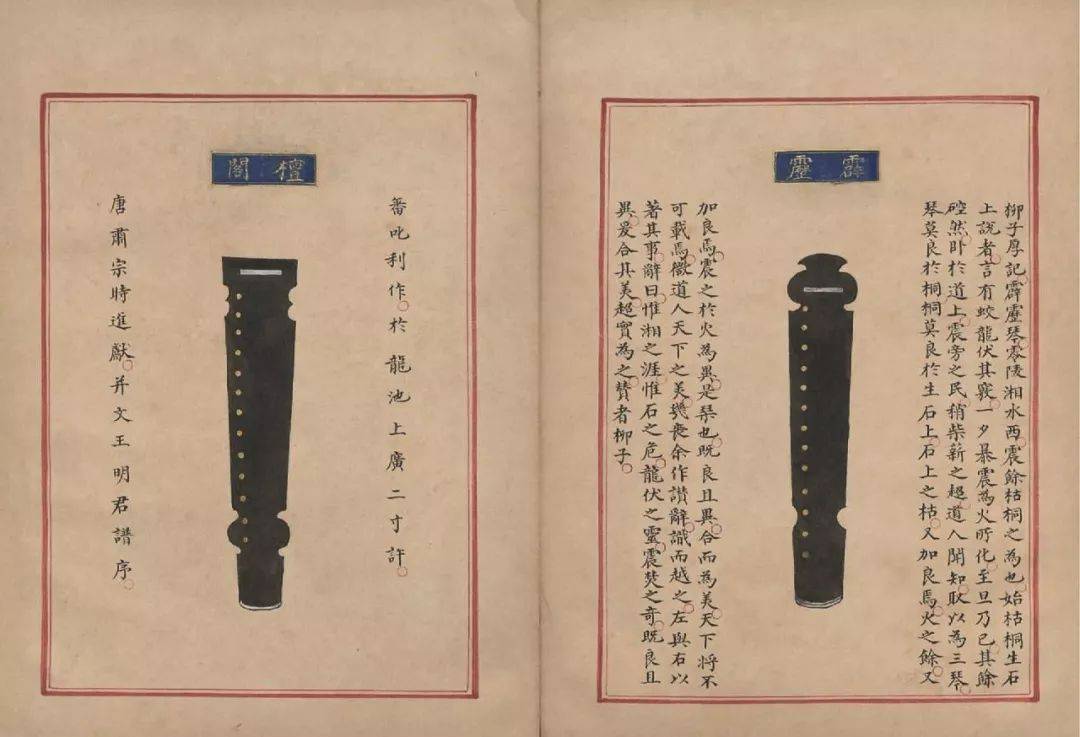 霹靂
柳子厚記霹靂琴零陵湘水西震餘枯桐之為也始枯桐生石
上說者言有蛟龍伏其竅一夕暴震為火所化至旦乃已其餘
硿然卧於道上震旁之民稍柴薪之超道人聞知取以為三琴
琴莫良於桐桐莫良於生石上石上之枯又加良焉火之餘又
加良焉震之於火為異是琴也既良且異合而為美天下將不
可載焉微道人天下之美幾喪余作讚辭識而越之左與右以
著其事辭曰惟湘之涯惟石之危龍伏之靈震焚之奇既良且
異爰合其美超實為之贊者柳子
檀閣
番叱利作於龍池上廣二寸許
唐肅宗時進獻并文王明君譜序